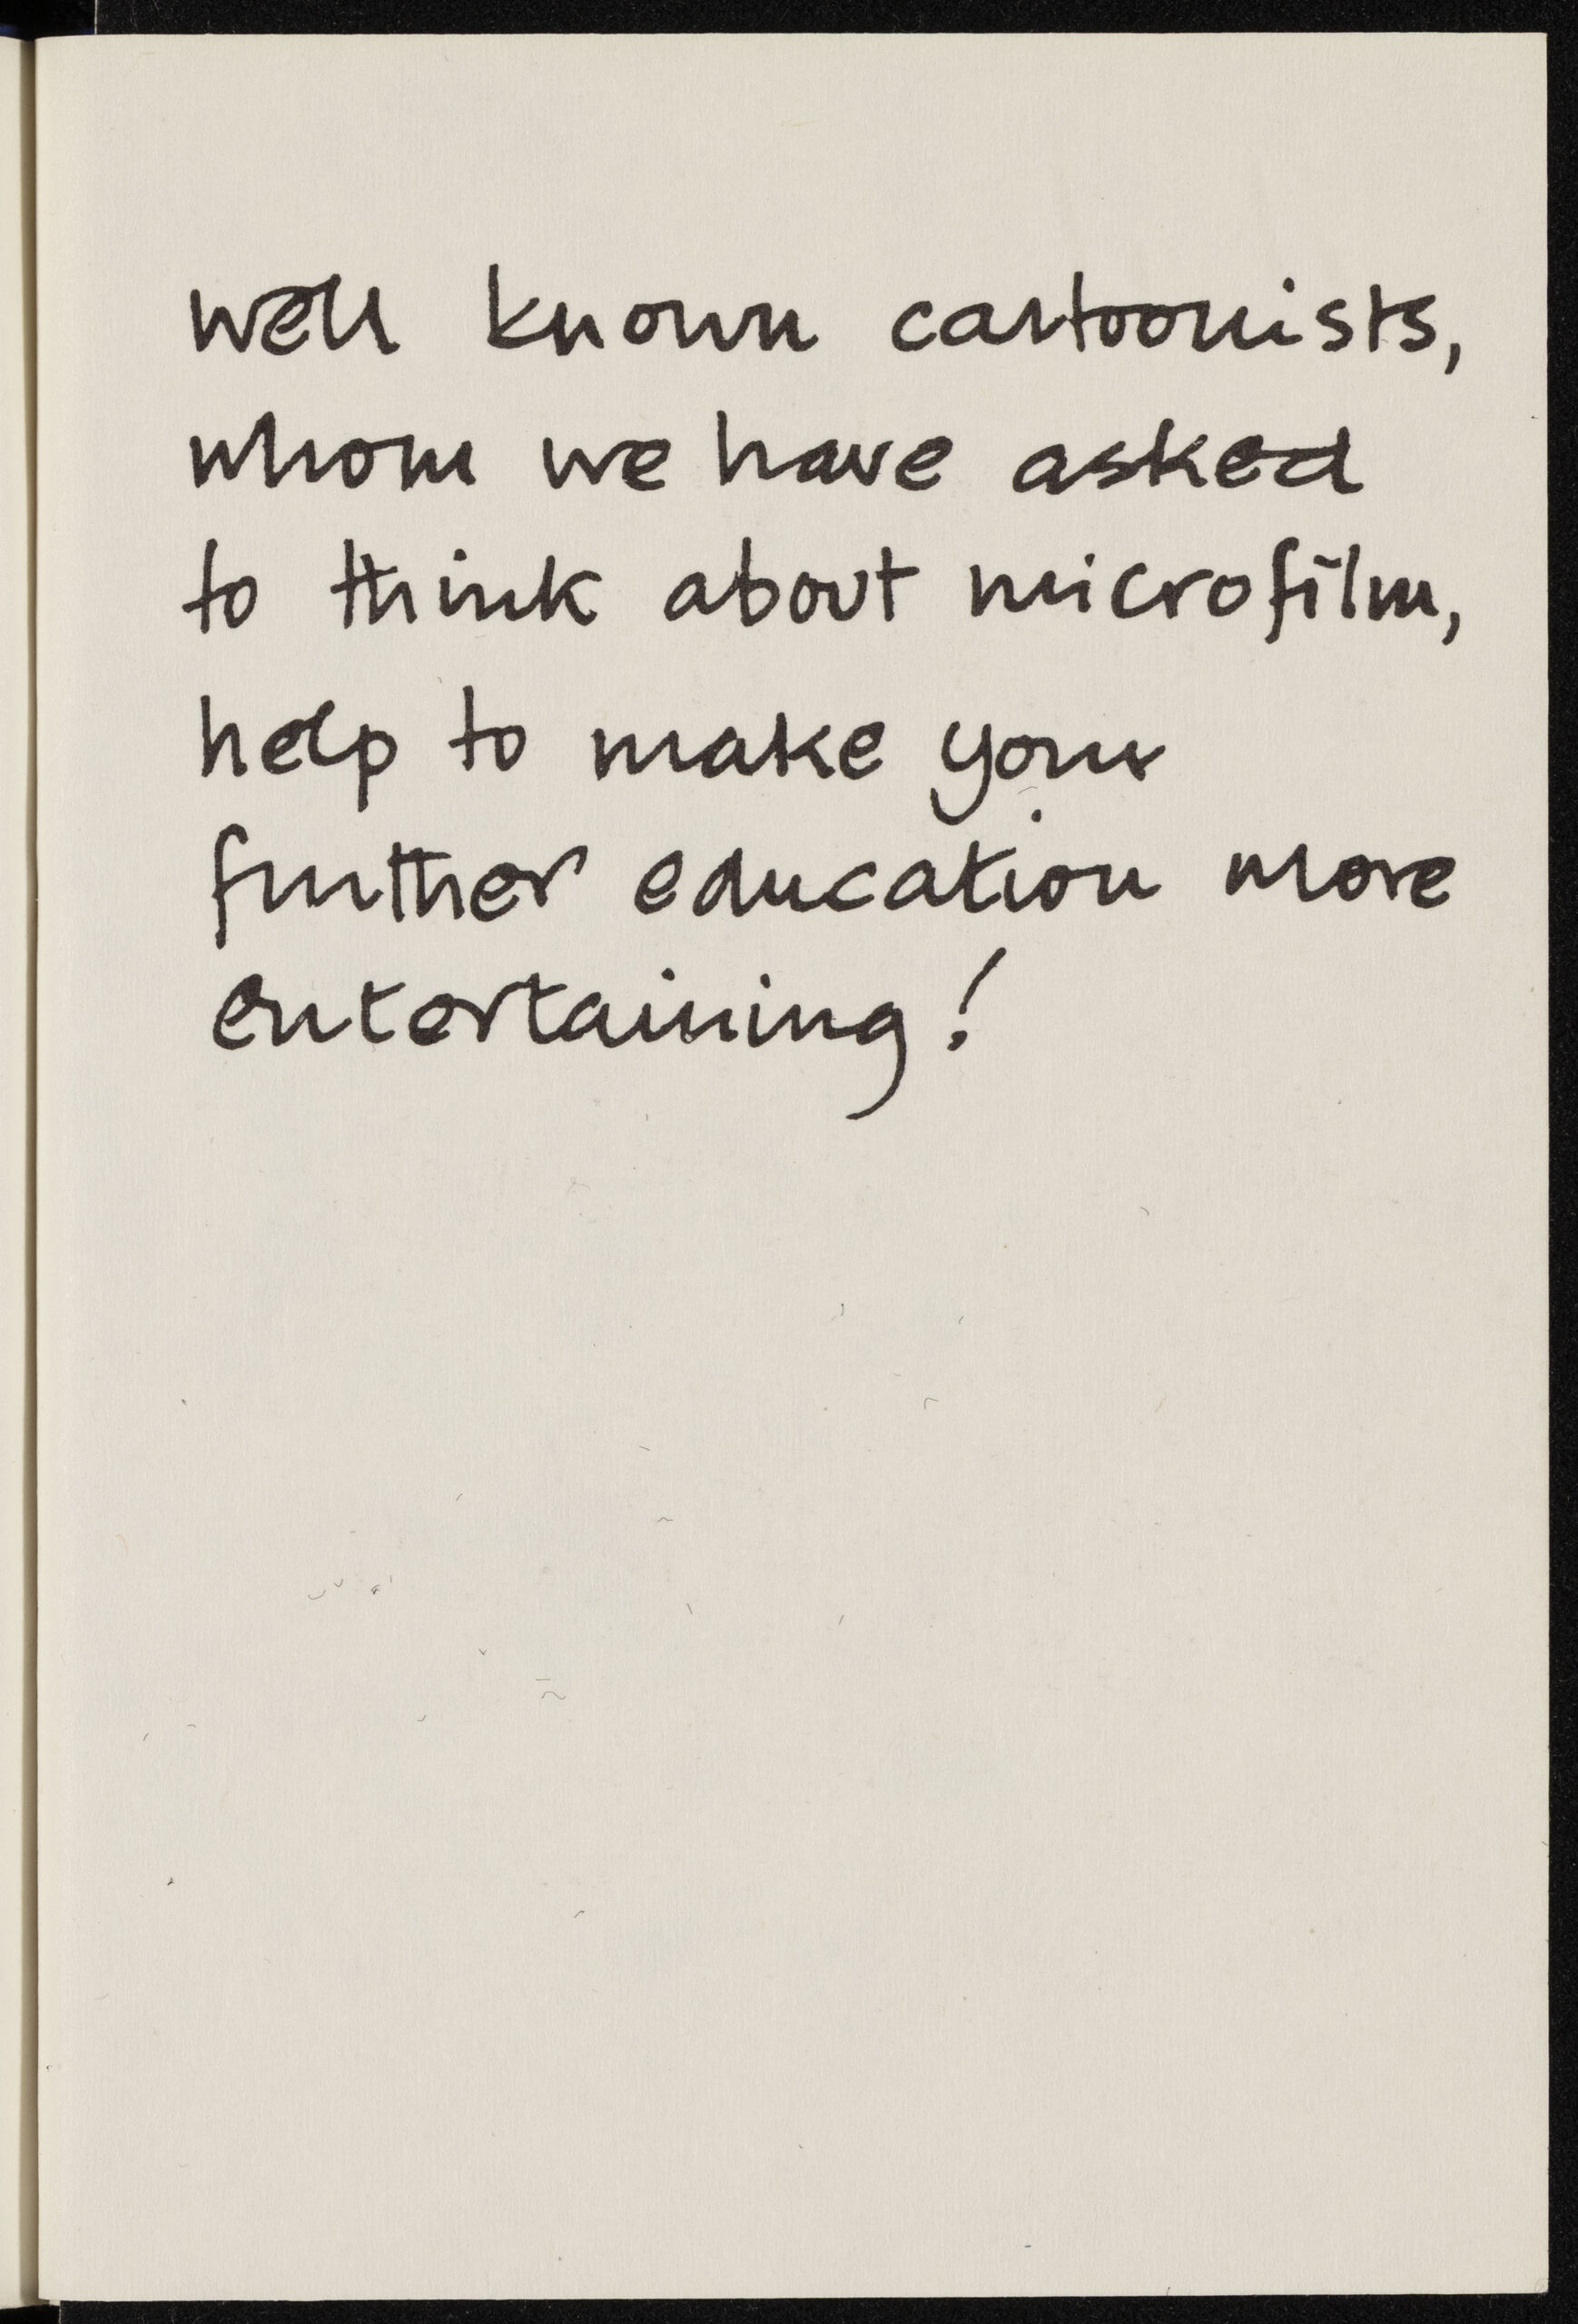 well known cartoonists,
whom we have asked
to think about microfilm,
help to make your
further education more
entertaining!